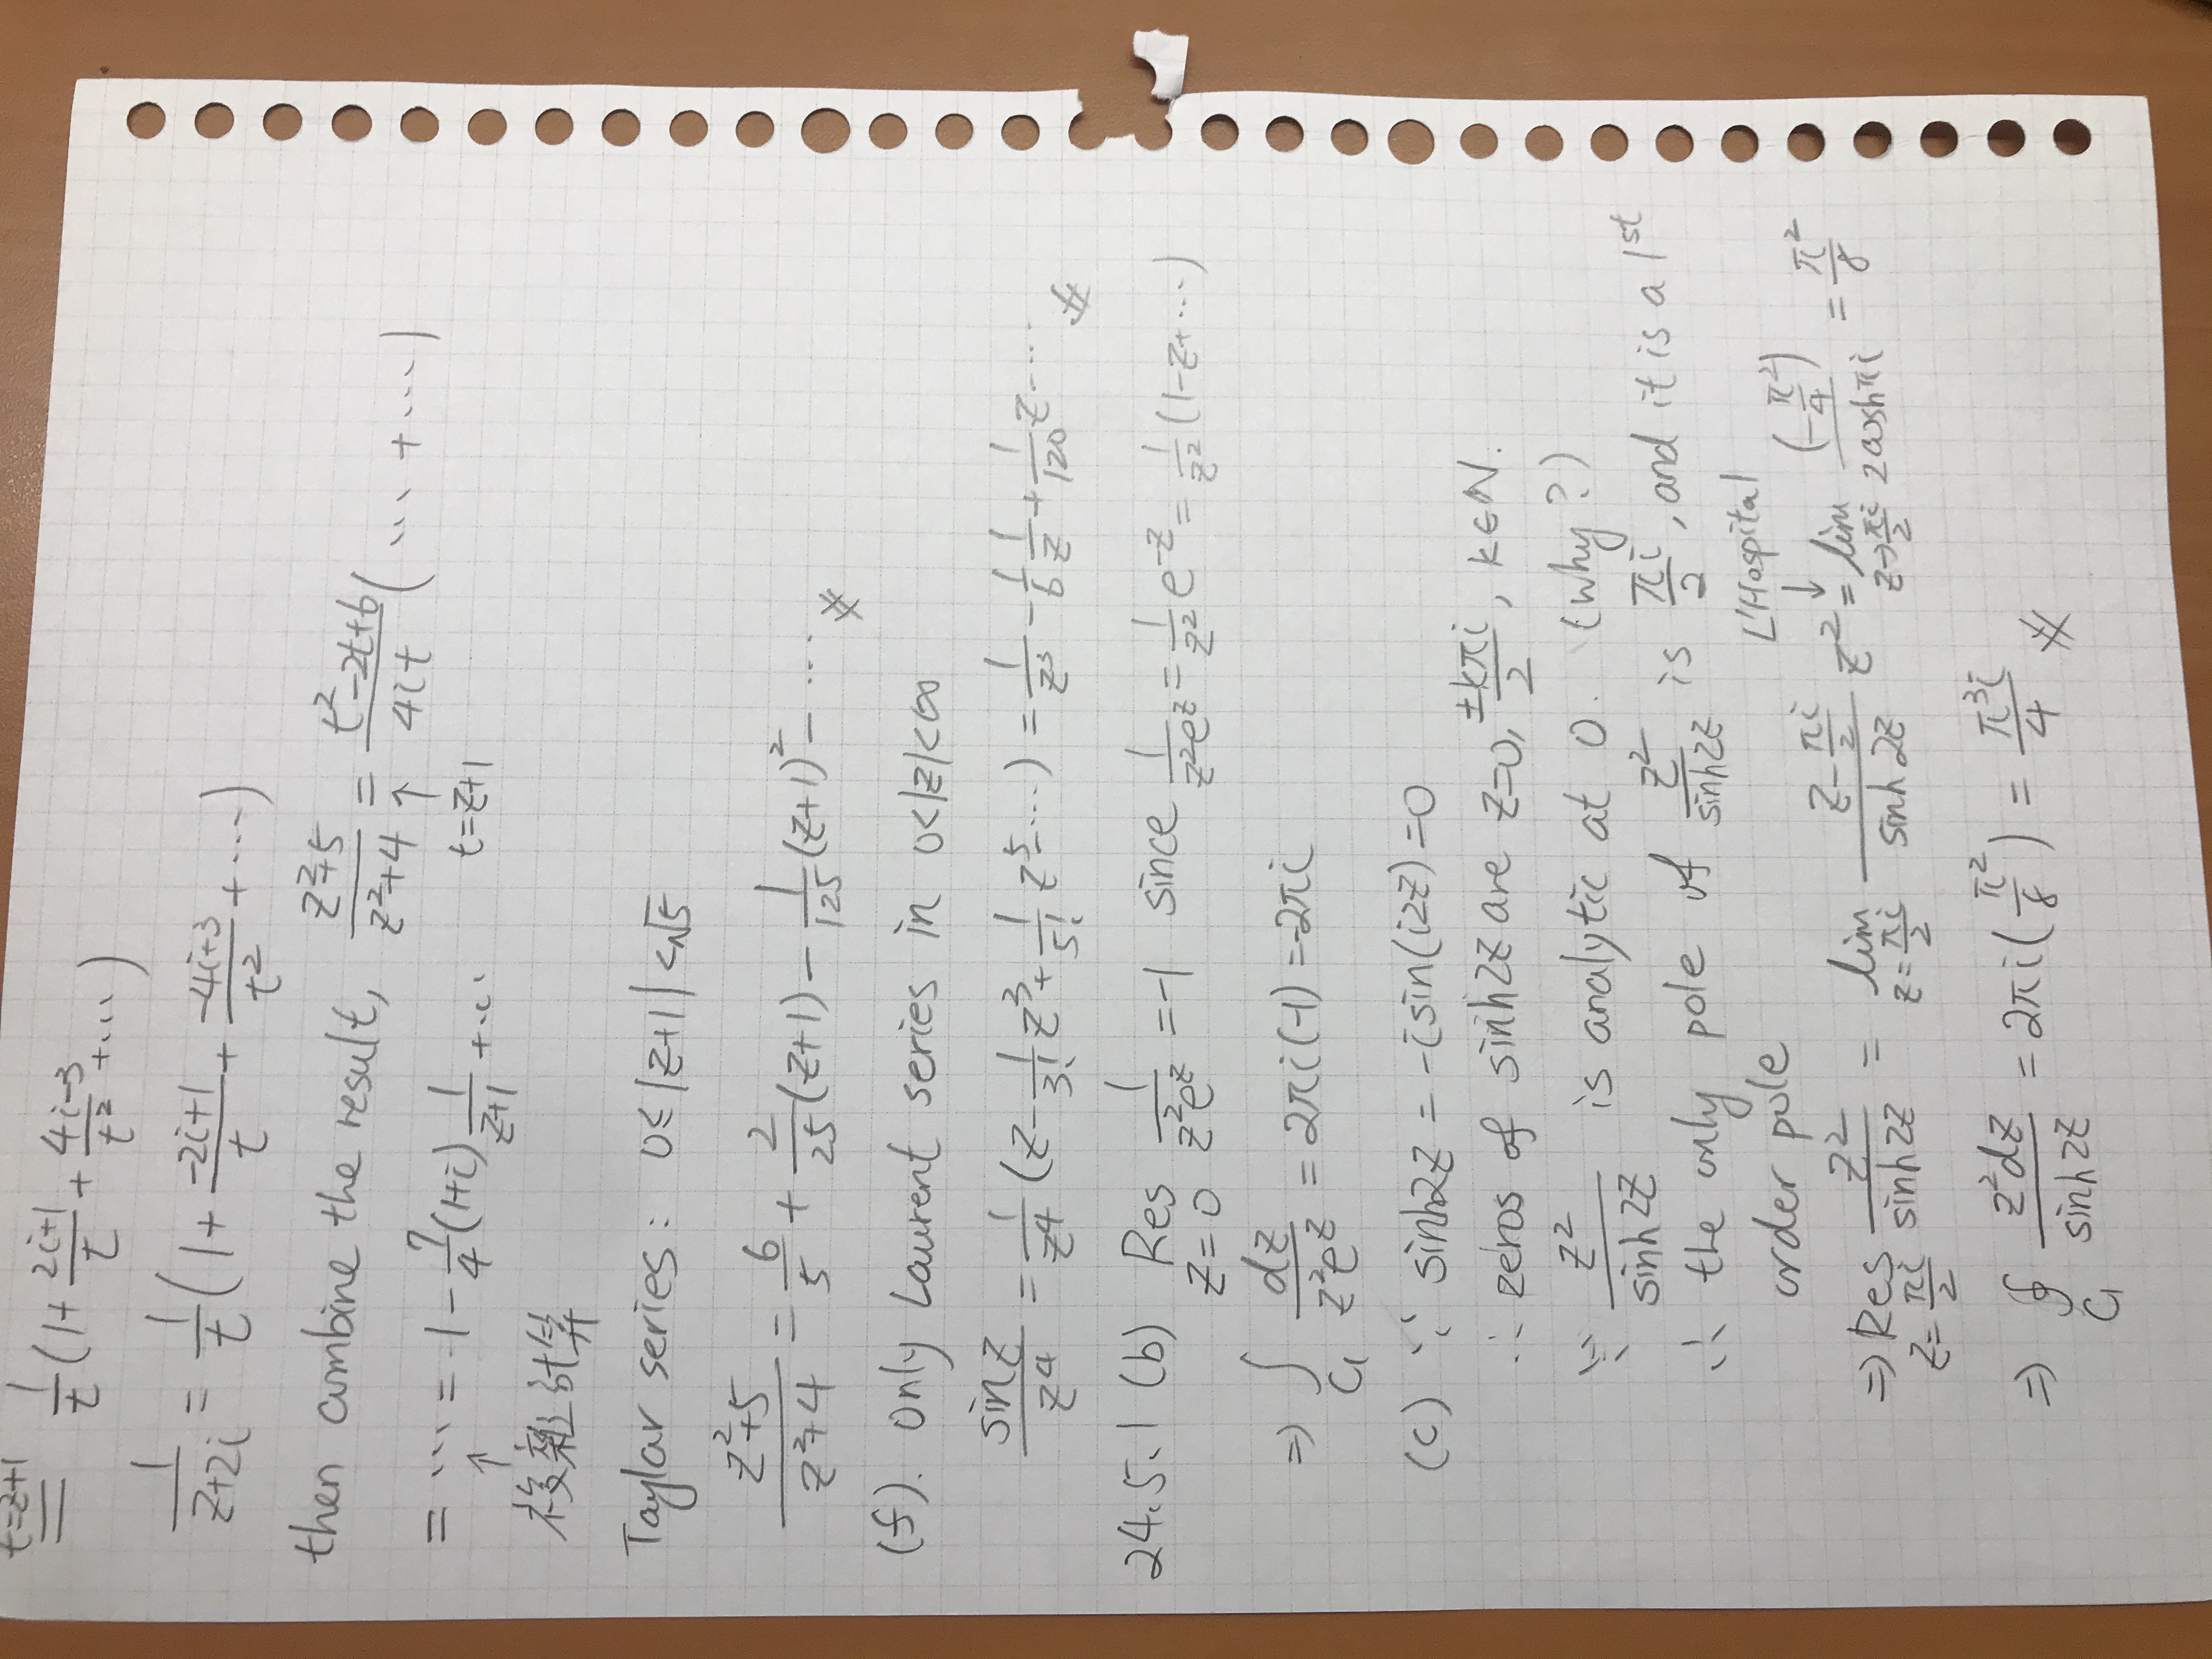 t=z+1
= 1/t (1 + (2i+1)/t + (4i-3)/t² + ...)
1/(z+2i) = 1/t (1 + (-2i+1)/t + (-4i+3)/t² + ...)
then combine the result, (z²+5)/(z²+4) = (t²-2t+6)/(4it) (... + ...)
= ... = 1 - 7/4 (1+i) 1/(z+1) + ... ↑ t=z+1
↑
複雜計算
Taylar series: 0≤|z+1|<√5
(z²+5)/(z²+4) = 6/5 + 2/25 (z+1) - 1/125 (z+1)² - ... #
(f). Only Laurent series in 0<|z|<∞
sinz/z⁴ = 1/z⁴ (z - 1/3! z³ + 1/5! z⁵ - ...) = 1/z³ - 1/6 1/z + 1/120 z - ... #
24.5.1 (b) Res z=0 1/(z²e^z) = -1 since 1/(z²e^z) = 1/z² e^-z = 1/z² (1-z+...)
⇒ ∫C₁ dz/(z²e^z) = 2πi(-1) = -2πi
(c) ∵ sinh2z = -isin(i2z) = 0
∴ zeros of sinh2z are z=0, ±kπi/2, k∈N.
∵ z²/sinh2z is analytic at 0. (why?)
∴ the only pole of z²/sinh2z is πi/2, and it is a 1st
order pole
L'Hospital
↓
⇒ Res z=πi/2 z²/sinh2z = lim z=πi/2 (z-πi/2)/sinh2z z² = lim z→πi/2 (-π²/4)/(2coshπi) = π²/8
⇒ ∮C₁ z²dz/sinh2z = 2πi(π²/8) = π³i/4 #